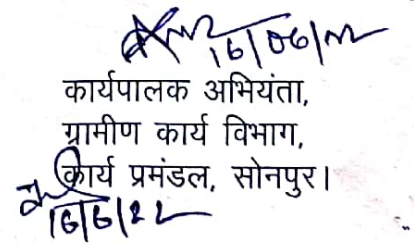 16/06/22
कार्यपालक अभियंता,
ग्रामीण कार्य विभाग,
कार्य प्रमंडल, सोनपुर।
16/6/22